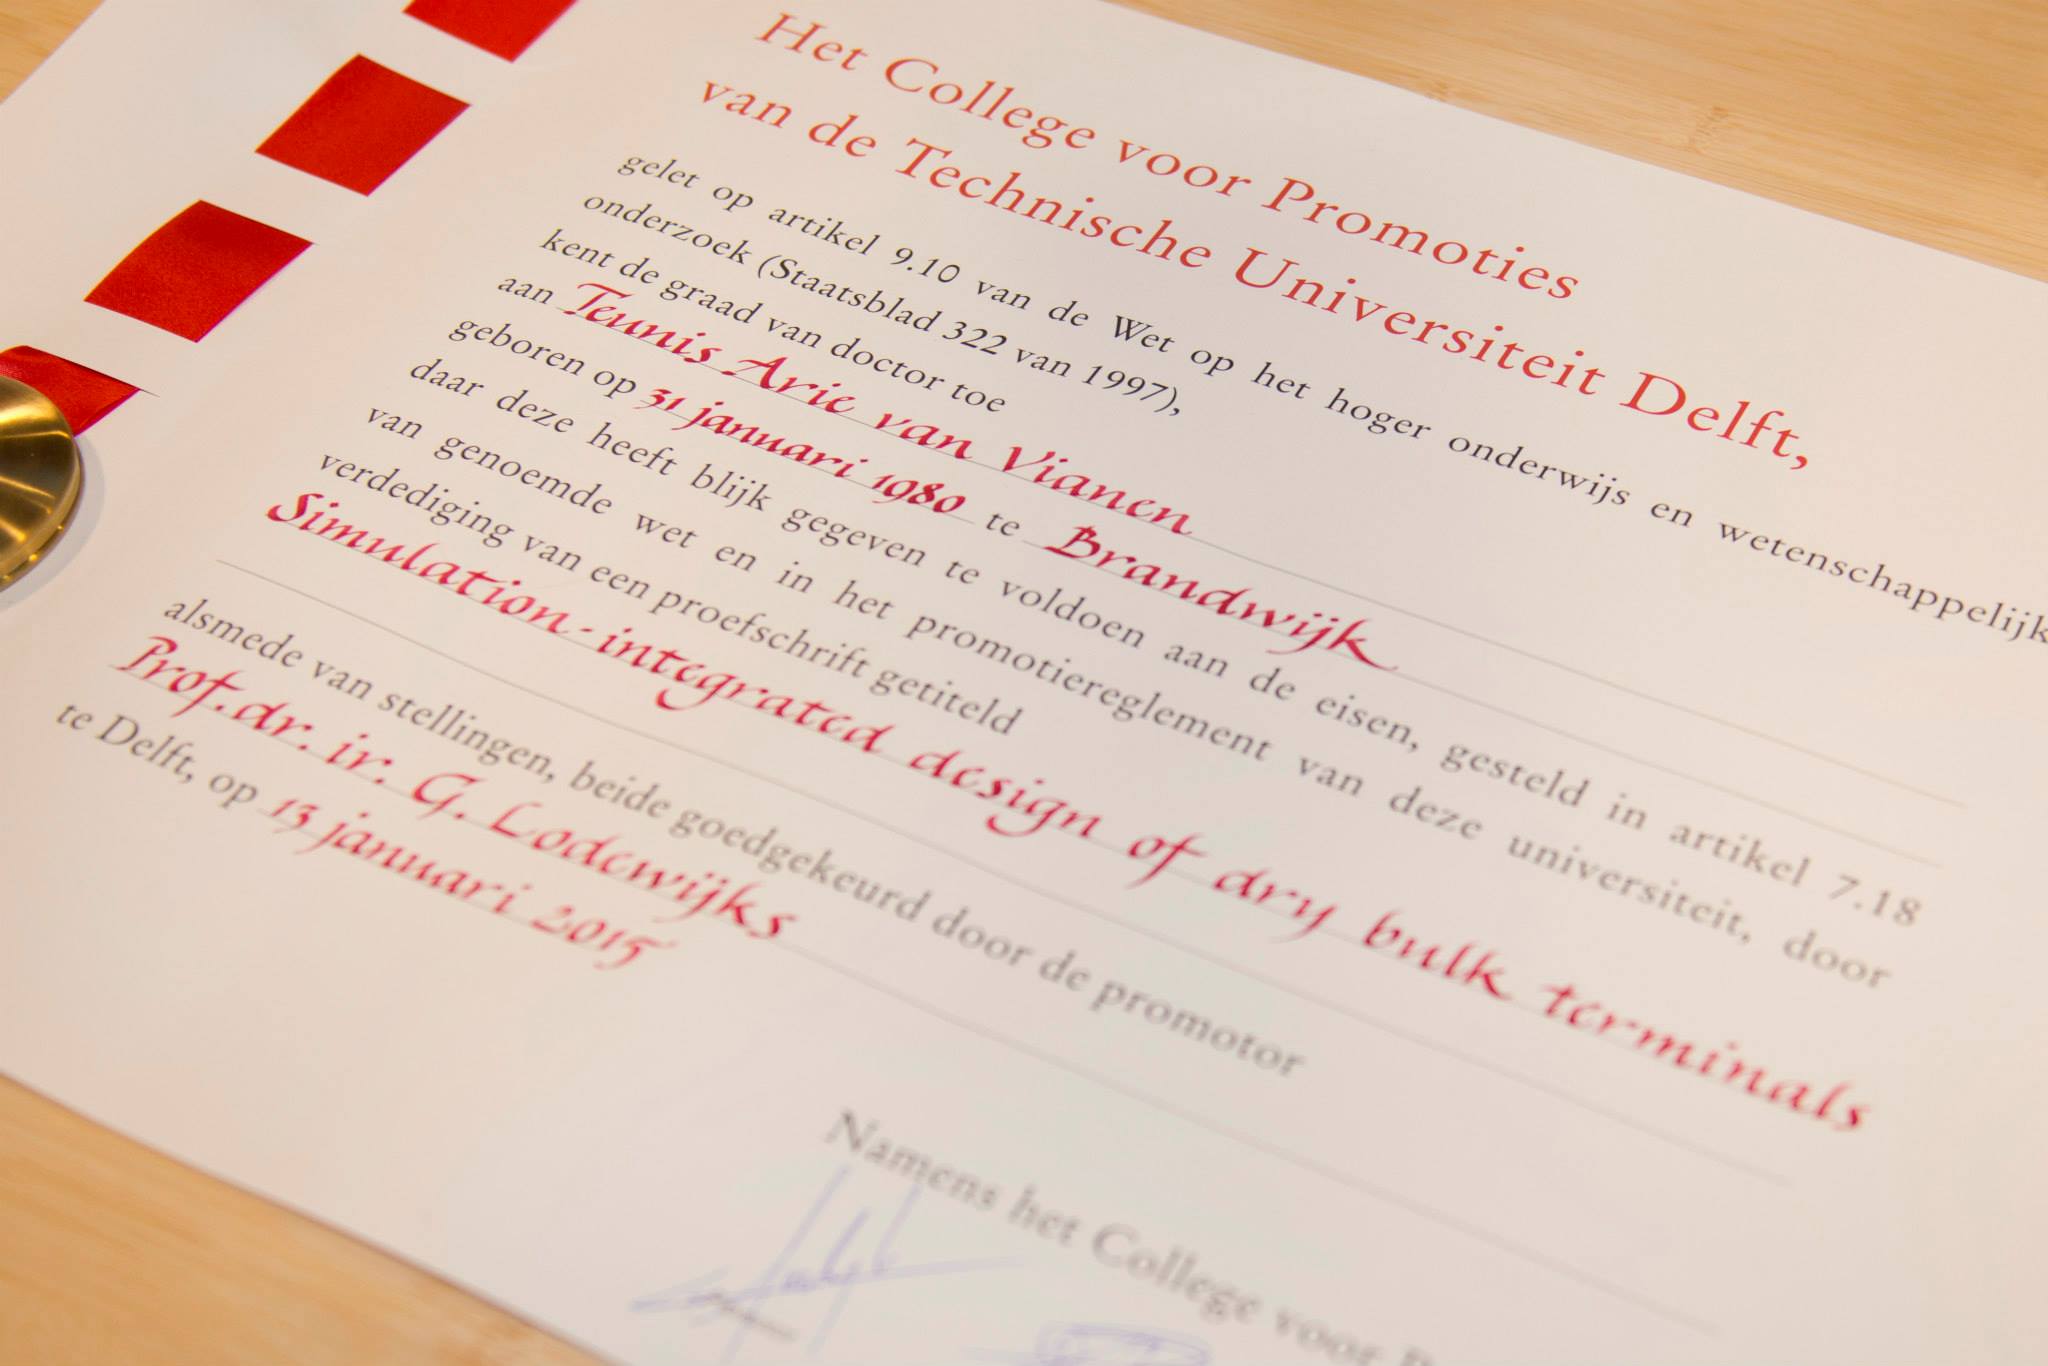 Het College voor Promoties
van de Technische Universiteit Delft,
gelet op artikel 9.10 van de Wet op het hoger onderwijs en wetenschappelijk
onderzoek (Staatsblad 322 van 1997),
kent de graad van doctor toe
aan Teunis Arie van Vianen
geboren op 31 januari 1980 te Brandwijk
daar deze heeft blijk gegeven te voldoen aan de eisen, gesteld in artikel 7.18
van genoemde wet en in het promotiereglement van deze universiteit, door
verdediging van een proefschrift getiteld
Simulation-integrated design of dry bulk terminals
alsmede van stellingen, beide goedgekeurd door de promotor
Prof.dr.ir. G. Lodewijks
te Delft, op 13 januari 2015
Namens het College voor